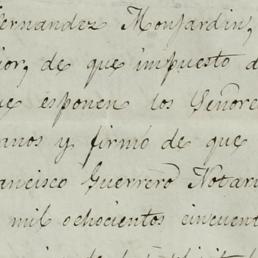 Fernandez Monjardin,
ior, de que impuesto d
ue esponen los Señore
anos y firmó de que
ancisco Guerrero Notar
mil ochocientos cincuent